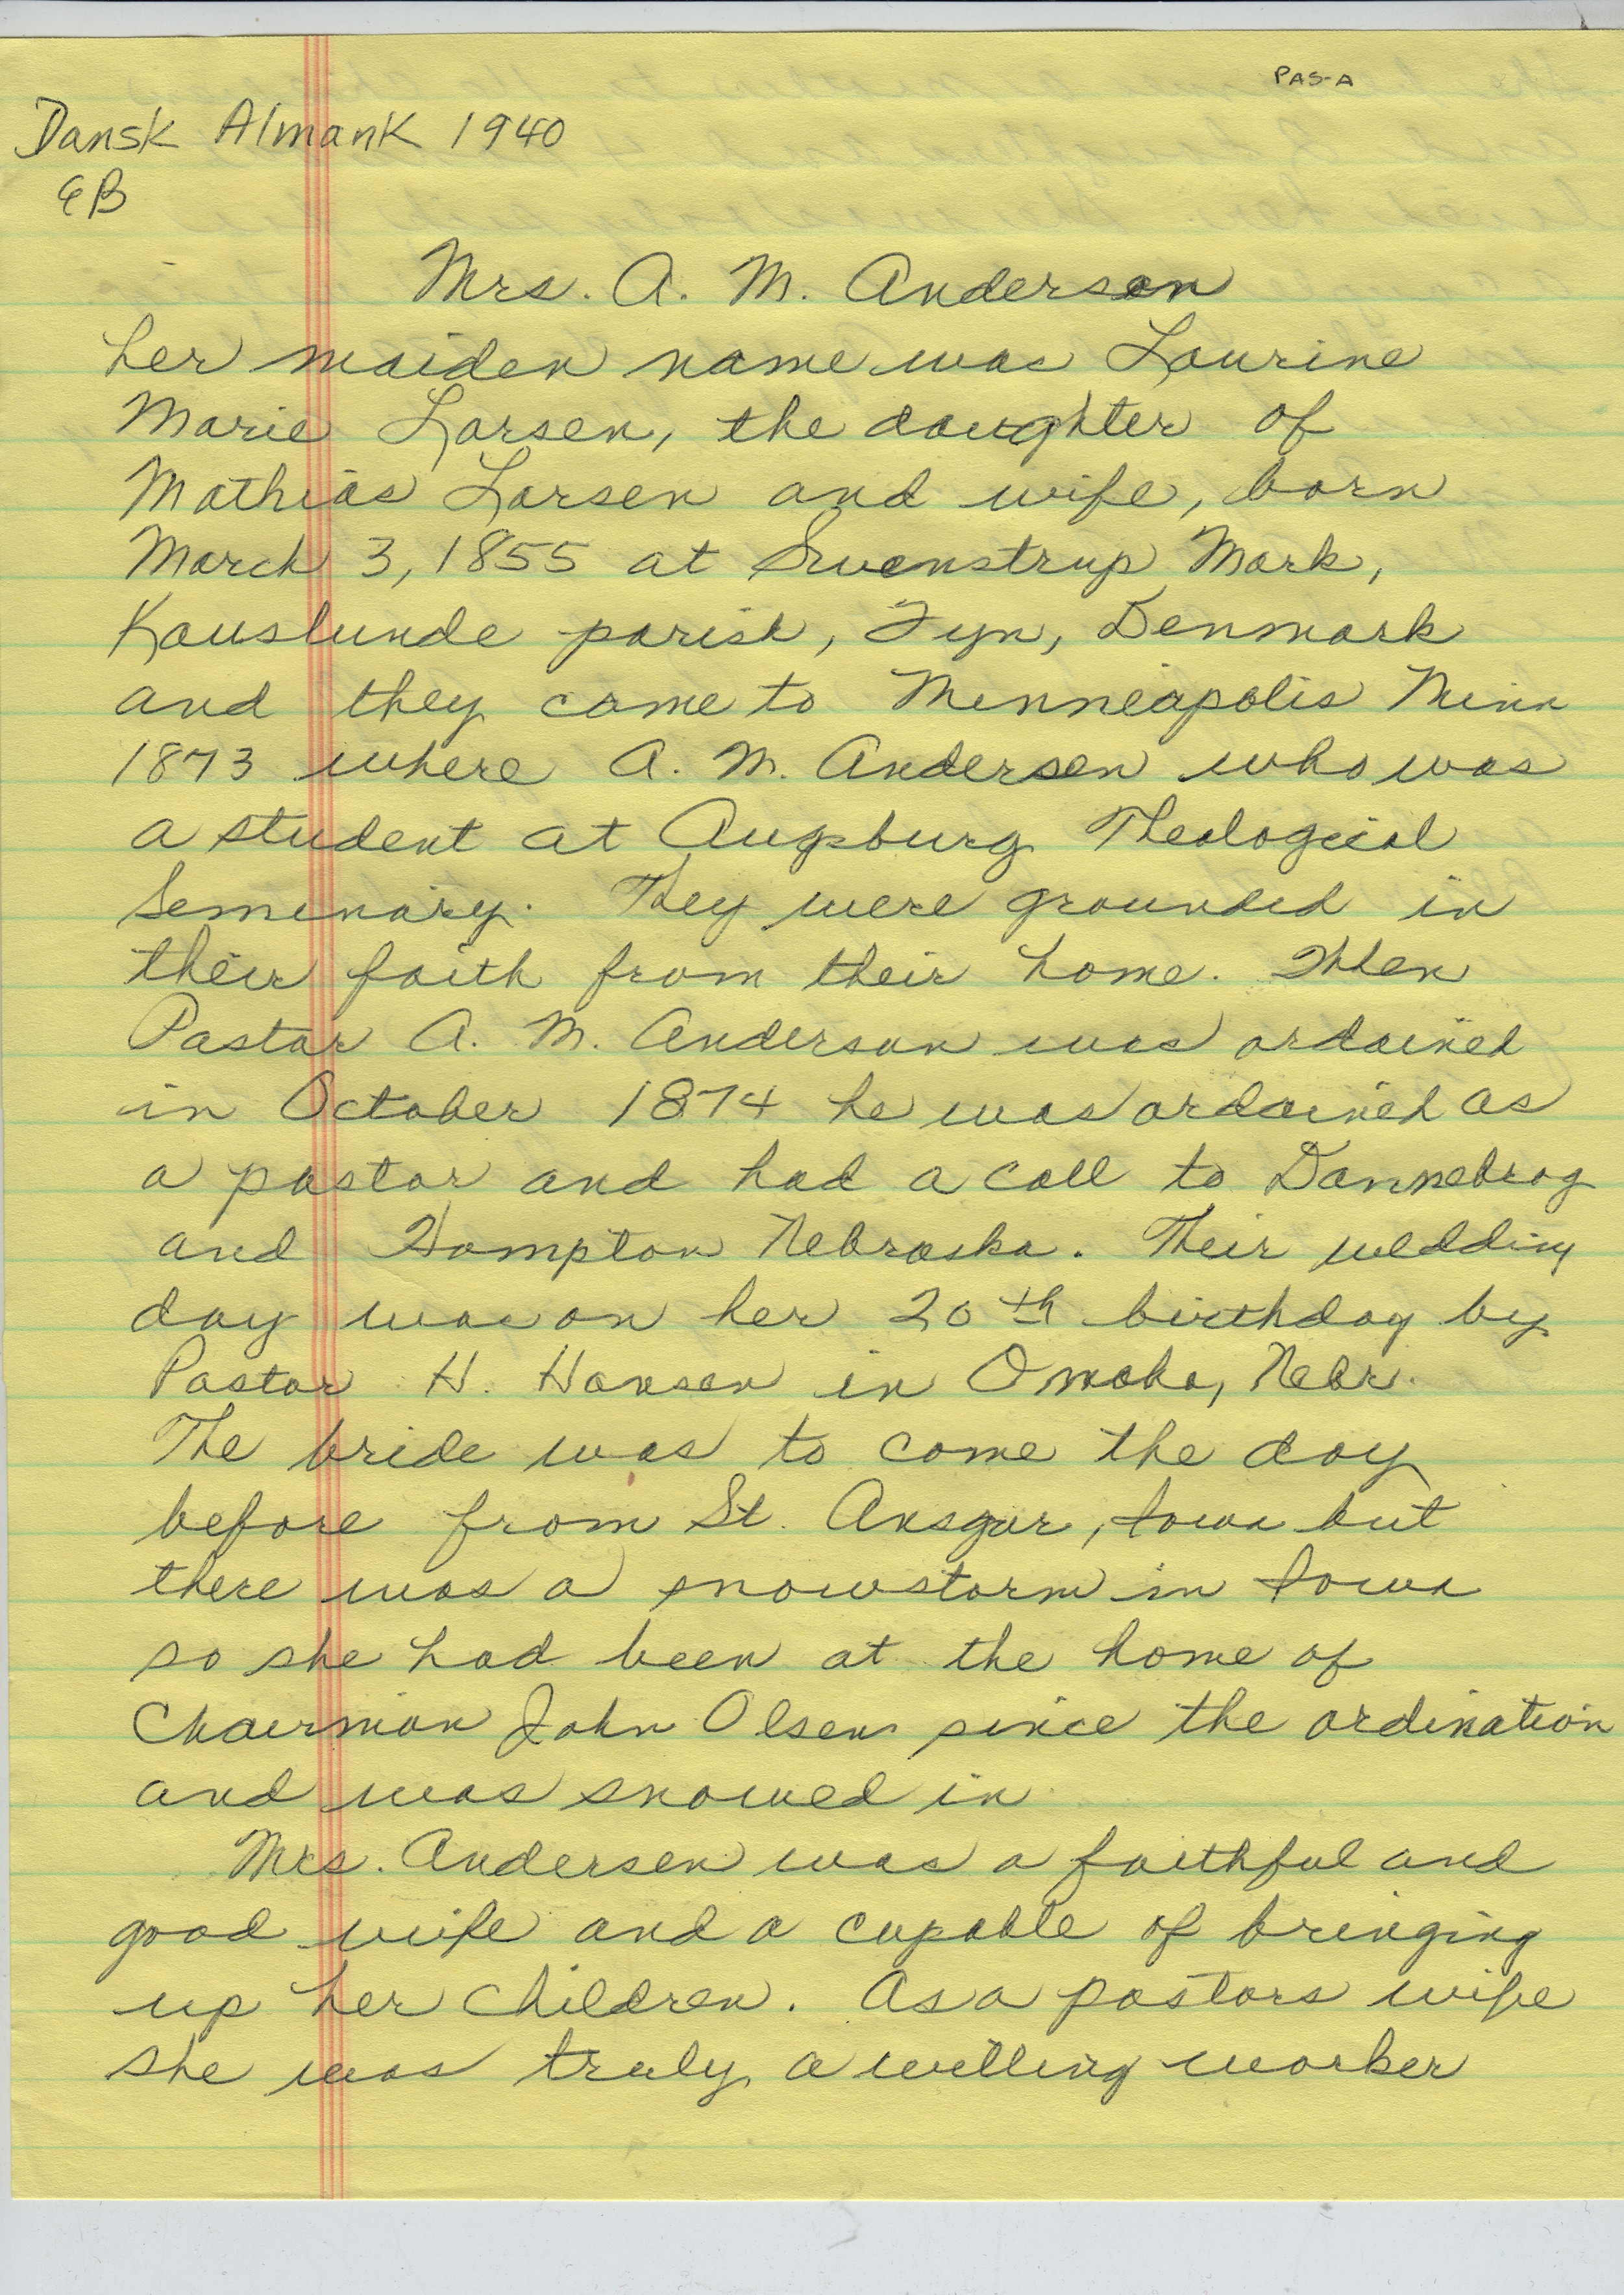 PAS-A
Dansk Almank 1940
EB
Mrs. A. M. Andersen
her maiden name was Laurine
Marie Larsen, the daughter of
Mathias Larsen and wife, born
March 3, 1855 at Svenstrup Mark,
Kauslunde parish, Fyn, Denmark
and they came to Minneapolis Minn
1873 where A. M. Andersen who was
a student at Augsburg Theological
Seminary. They were grounded in
their faith from their home. When
Pastor A. M. Andersen was ordained
in October 1874 he was ordained as
a pastor and had a call to Dannebrog
and Hampton Nebraska. Their wedding
day was on her 20th birthday by
Pastor H. Hansen in Omaha, Nebr.
The bride was to come the day
before from St. Ansgar, Iowa but
there was a snowstorm in Iowa
so she had been at the home of
Chairman John Olsen since the ordination
and was snowed in.
Mrs. Andersen was a faithful and
good wife and a capable of bringing
up her children. As a pastors wife
she was truly a willing worker